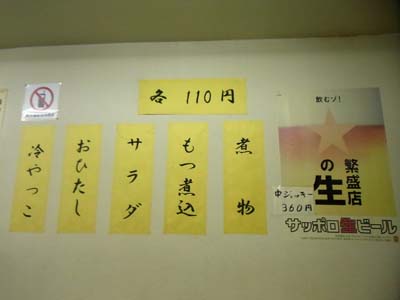 各 110円
煮物
もつ煮込
サラダ
おひたし
冷やっこ
飲むゾ!
繁盛店
の生
中ジョッキー
360円
サッポロ生ビール